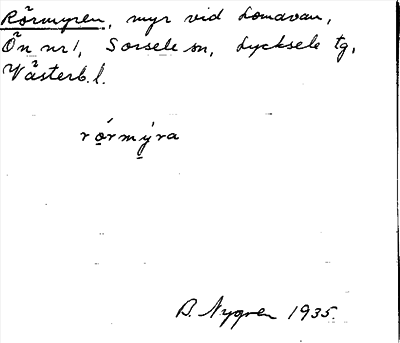 Rörmyren, myr vid Lomavan,
Ön nr 1, Sorsele sn, Lycksele tg,
Västerb. l.
rǫ́rmỵ́ra
D. Nygren 1935.